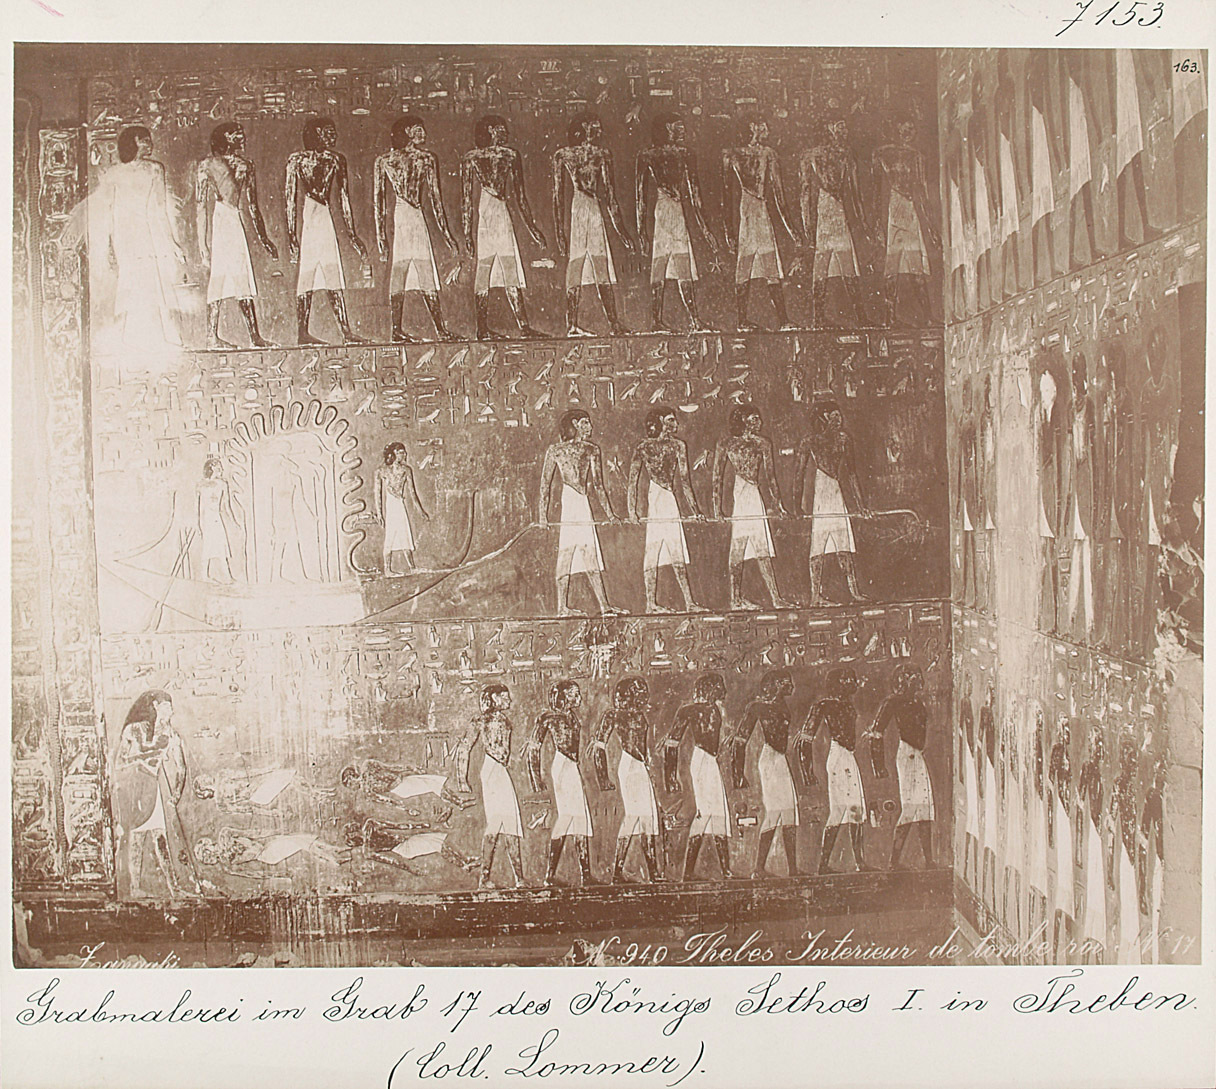 7153.
163.
Zangaki
N. 940 Thebes Interieur de tombe roi N 17
Grabmalerei im Grab 17 des Königs Sethos I. in Theben.
(Coll. Lommer).